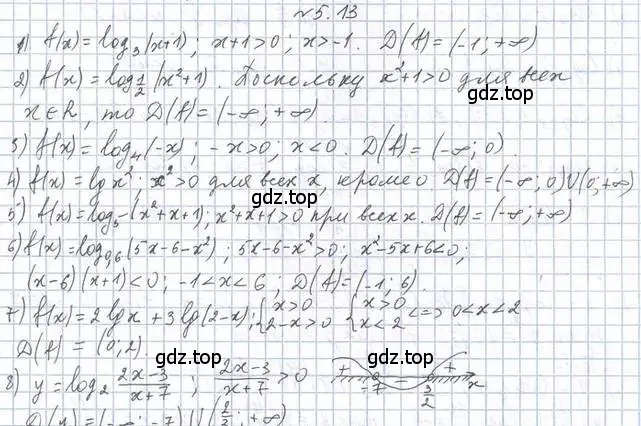 №5.13
1) f(x) = log₃(x+1); x+1>0; x>-1. D(f) = (-1; +∞)
2) f(x) = log_{1/2}(x²+1). Поскольку x²+1>0 для всех
x∈R, то D(f) = (-∞; +∞).
gdz.top
3) f(x) = log₄(-x); -x>0; x<0. D(f) = (-∞; 0)
4) f(x) = lg x²; x²>0 для всех x, кроме 0 D(f) = (-∞; 0)U(0; +∞)
gdz.top
5) f(x) = log₅(x²+x+1); x²+x+1>0 при всех x. D(f) = (-∞; +∞)
6) f(x) = log_{0,6}(5x-6-x²); 5x-6-x²>0; x²-5x+6<0;
(x-6)(x+1)<0; -1<x<6; D(f) = (-1; 6).
gdz.top
7) f(x) = 2 lg x + 3 lg(2-x); {x>0 2-x>0 {x>0 x<2 <=> 0<x<2
D(f) = (0; 2).
gdz.top
8) y = log₂ (2x-3)/(x+7); (2x-3)/(x+7) > 0 + -7 - 3/2 + x
D(y) = (-∞; -7)U(2/3; +∞)
gdz.top